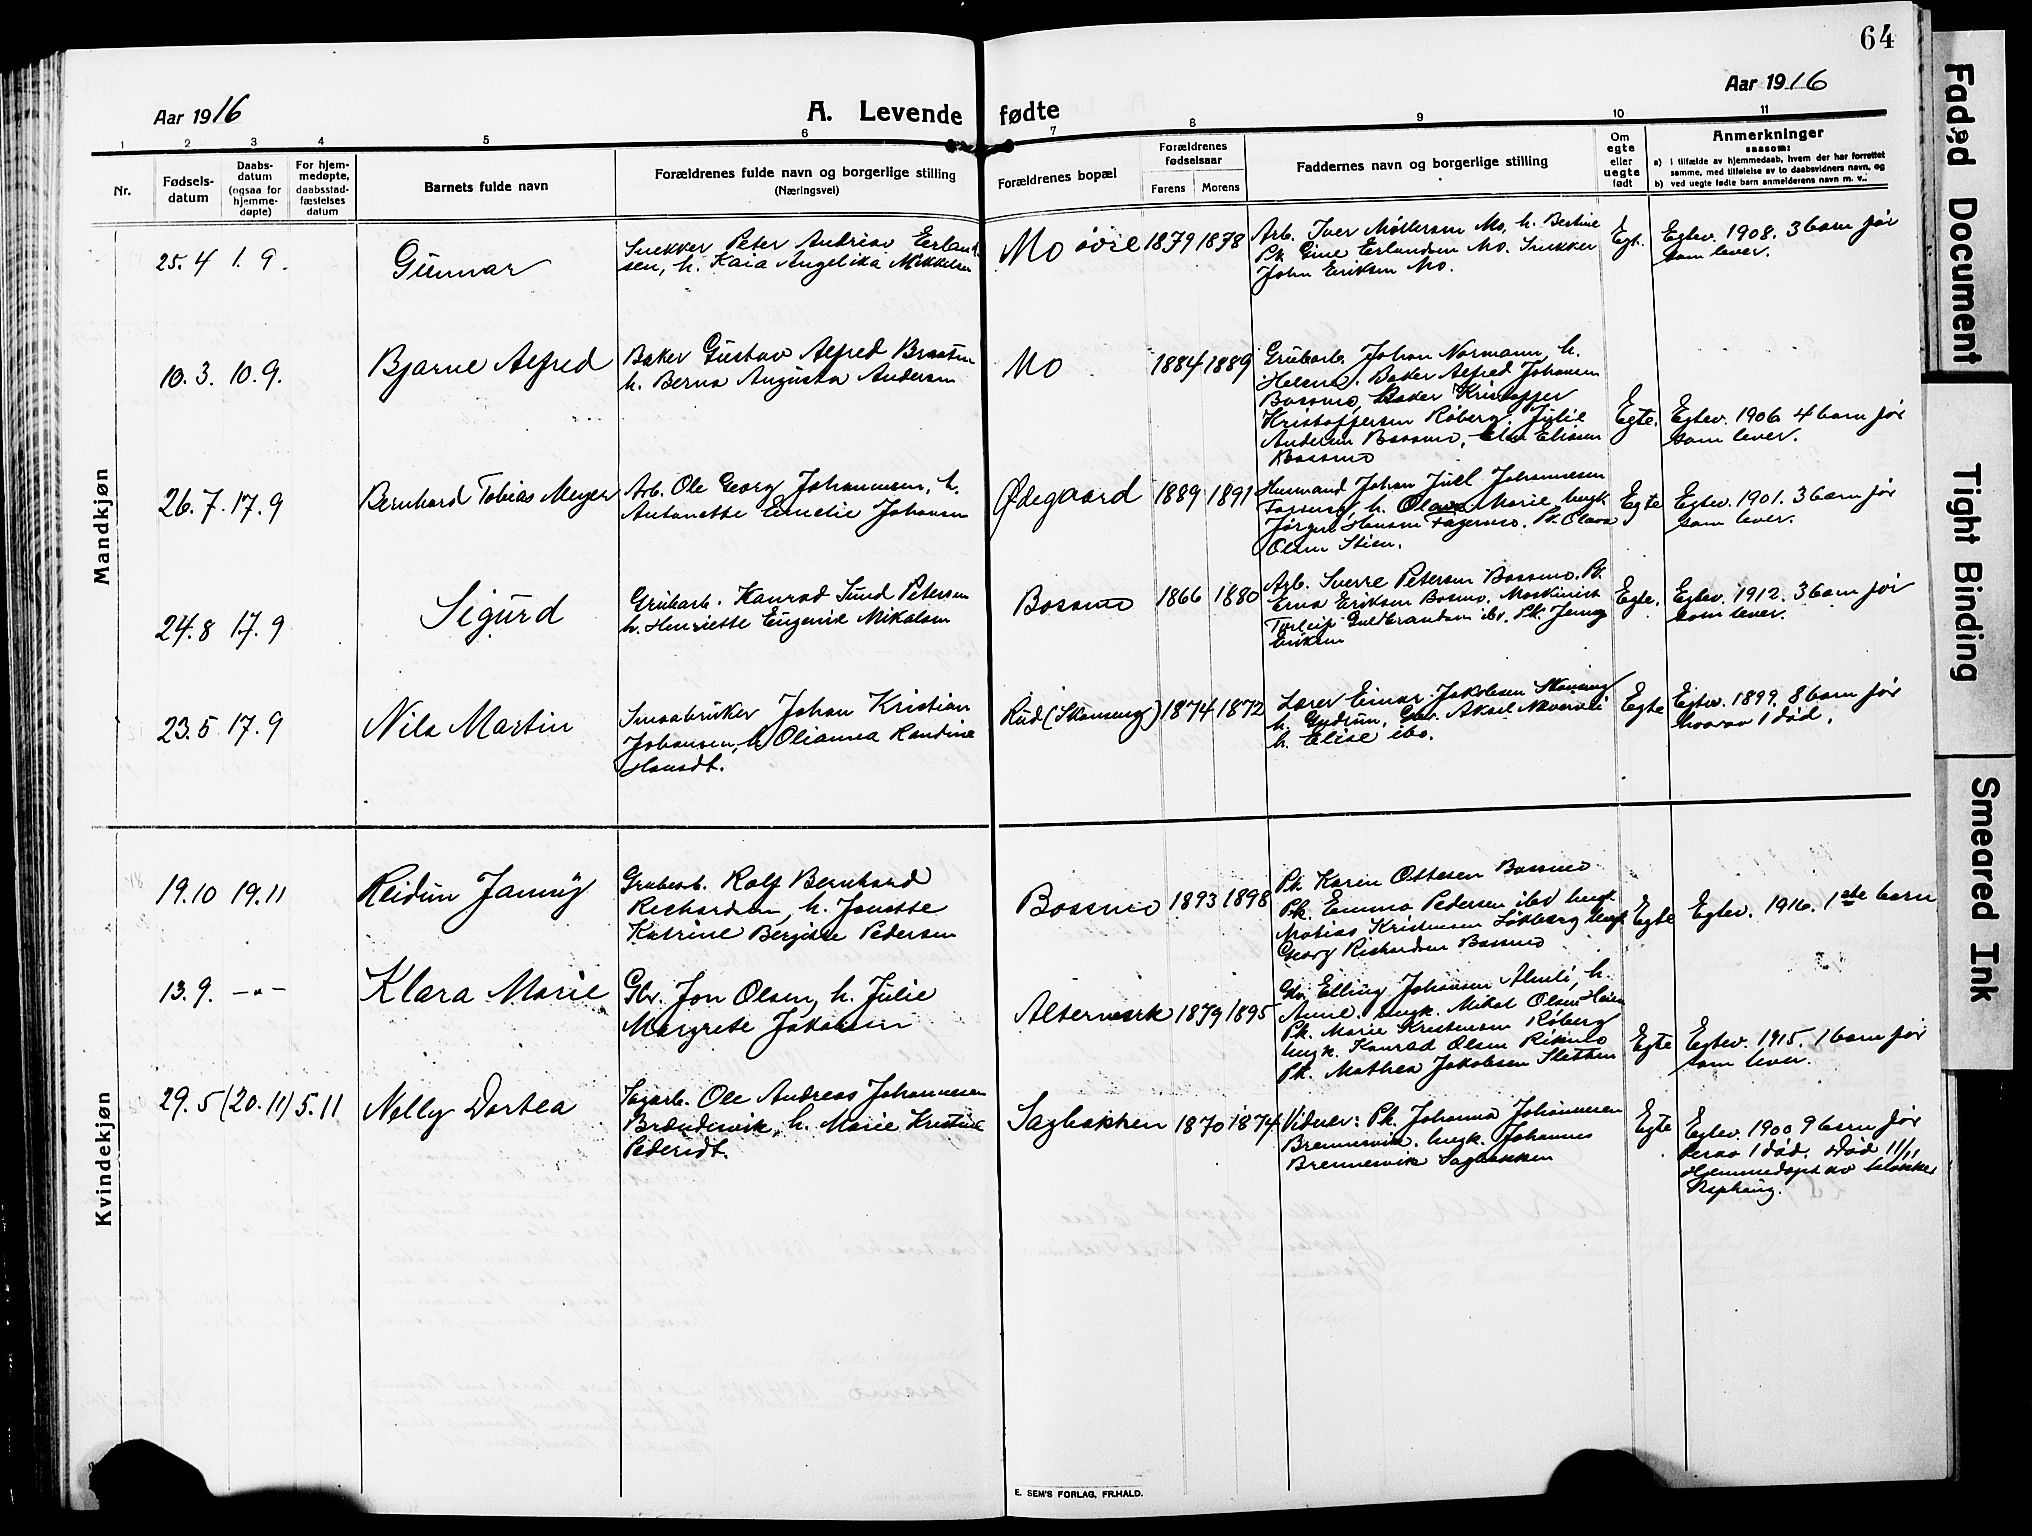 64
Aar 1916
A. Levende fødte
Aar 1916
1 2 3 4 5 6 7 8 9 10 11
Nr.
Fødsels-
datum
Daabs-
datum
(ogsaa for
hjemme-
døpte)
For hjem-
medøpte,
daabsstad-
fæstelses
datum
Barnets fulde navn
Forældrenes fulde navn og borgerlige stilling
(Næringsvei)
Forældrenes bopæl
Forældrenes
fødselsaar
Farens Morens
Faddernes navn og borgerlige stilling
Om
egte
eller
uegte
født
Anmerkninger
saasom:
a) i tilfælde av hjemmedaab, hvem der har forrettet
samme, med tilføielse av to daabsvidners navn, og
b) ved uegte fødte barn anmelderens navn m. v.
Mandkjøn
25.4 1.9.
Gunnar
Snekker Peter Andreas Erland
sen, h. Kaia Angelika Mikkelsen
Mo øvre 1879 1878
Arb. Iver Møllersen Mo, h. Bertine
Pk. Gine Erlandsen Mo. Snekker
John Eriksen Mo.
Egt.
Egtev. 1908. 3 barn før
som lever.
10.3. 10.9.
Bjarne Alfred
Baker Gustav Alfred Braaten
h. Berna Augusta Andersen
Mo 1884 1889
Grubearb. Johan Normann, h.
Helena. Baker Alfred Johansen
Bossmo, Baker Kristoffer
Kristoffersen Røberg. Julie
Andersen Bossmo, Elen Elisen
Bossmo
Egte.
Egtev. 1906 4 barn før
som lever.
26.7. 17.9
Bernhard Tobias Meyer
Arb. Ole Georg Johannesen, h.
Antonette Emelie Johansen
Ødegaard 1889 1891
Husmand Johan Juel Johannesen
h. Olava Marie, ungk.
Jørgen Hansen Fagermo. Pk. Olava
Olsen Stien.
Egte
Egtev. 1901. 3 barn før
som lever.
24.8 17.9
Sigurd
Grubarb. Konrad Sund Petersen
h. Henriette Eugenie Mikalsen
Bossmo 1866 1880
Arb. Sverre Petersen Bossmo. Pk.
Erna Eriksen Bosmo. Maskinist
Torleif Guldbrandsen ibd. Pk. Jenny
Eriksen
Egte.
Egtev. 1912. 3 barn før
som lever.
23.5 17.9
Nils Martin
Smaabruker Johan Kristian
Johansen, h. Olianna Randine
Hansdt.
Rud (Skonseng) 1874 1872
Lærer Einar Jakobsen Skonseng
h. Gudrun, Gbr. Aksel Nævernli
h. Elise ibd.
Egte
Egtev. 1899. 8 barn før
hvorav 1 død.
Kvindekjøn
19.10 19.11
Reidun Jenny
Grubearb. Rolf Bernhard
Richardsen, h. Jonette
Katrine Bergitte Pedersen
Bossmo 1893 1898
Pk. Karen Ottesen Bossmo
Pk. Emma Pedersen ibd ungk
Matias Kristensen Løkberg ungk
Georg Richardsen Bossmo
Egte
Egtev. 1916. 1ste barn
13.9. -"-
Klara Marie
Gbr. Jon Olsen, h. Julie
Margrete Jakobsen
Altermark 1879 1895
Gbr. Elling Johansen Almli, h.
Anne. ungk. Mikal Olsen Heien
Pk. Marie Kristensen Røberg
ungk. Konrad Olsen
Pk. Mathea Jakobsen Sletten
Egte
Egtev. 1915. 1 barn før
som lever.
29.5 (20.11) 5.11
Nelly Dortea
Sagarb. Ole Andreas Johannesen
Brændesvik, h. Marie Kristine
Pedersdt.
Sagbakken 1870 1874
Vidner: Pk. Johanna Johannesen
Brennesvik. ungk. Johannes
Brennesvik Sagbakken
Egte
Egtev. 1900 9 barn før
derav 1 død. Død 11/11
Hjemmedøpt av klokker
E. SEM'S FORLAG, FR.HALD.
Faded Document
Tight Binding
Smeared Ink